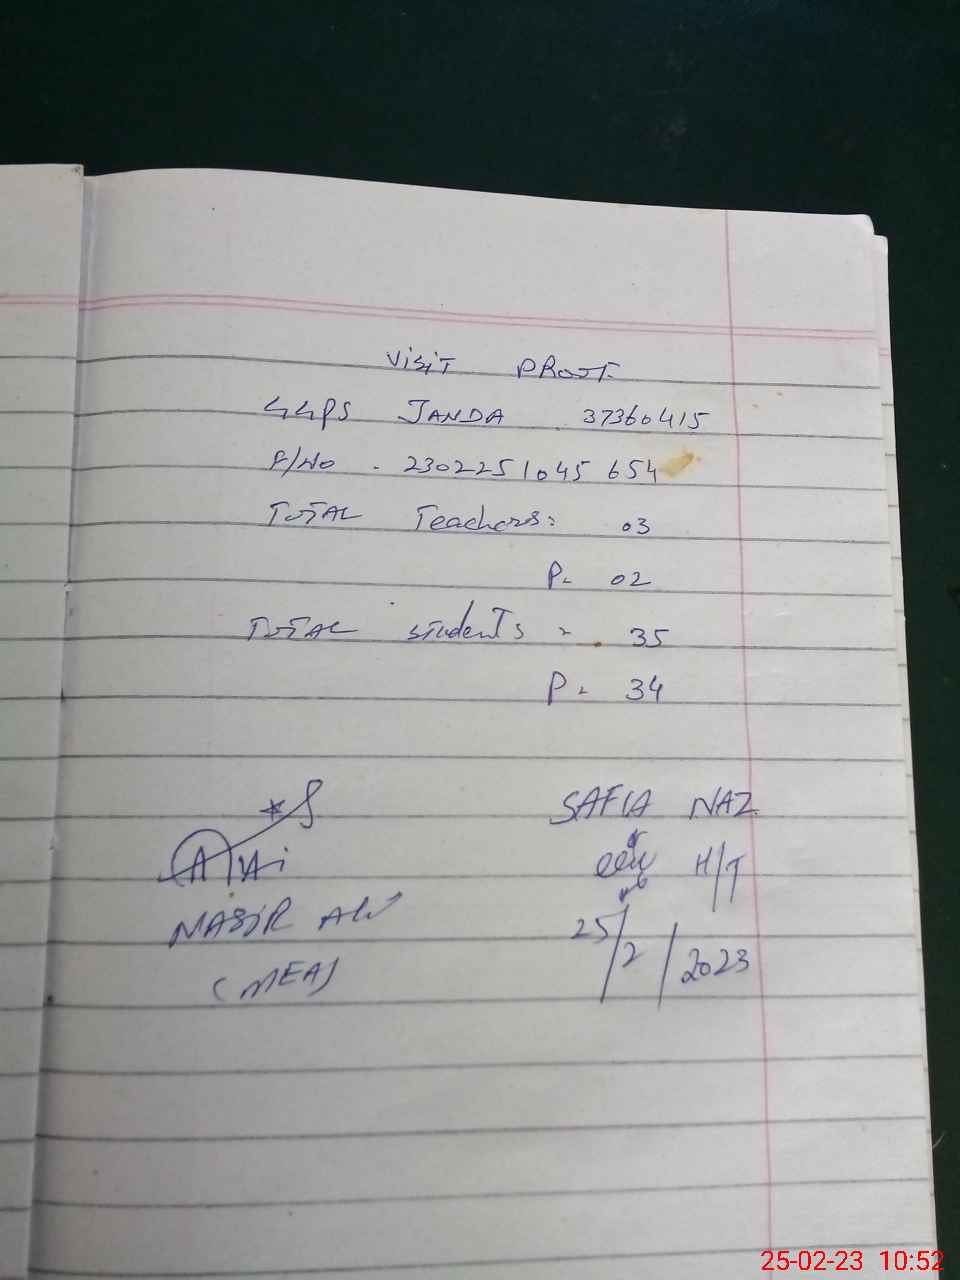 Visit Proof
GGPS JANDA 37360415
F/No. 2302251045654
TOTAL Teachers: 03
P= 02
TOTAL students = 35
P= 34
SAFIA NAZ
H/T
NASIR ALI
25/2/2023
(MEA)
25-02-23 10:52